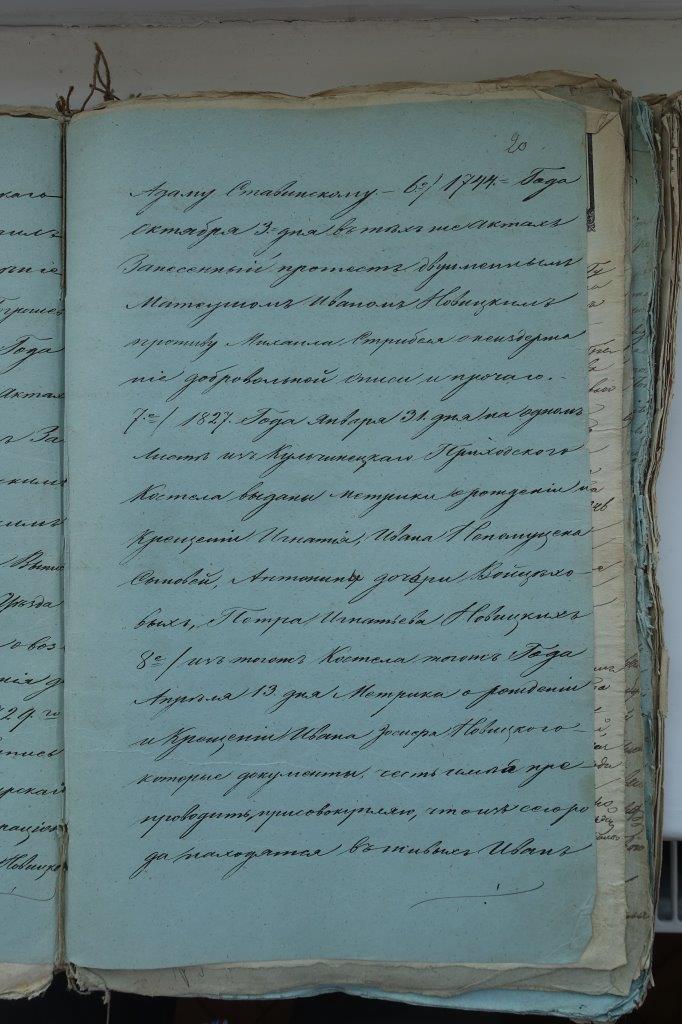 20
Адаму Ставинскому – 6е/ 1744.= Года
октября 3. дня въ тѣхъ же актахъ
Занесенный протестъ двуименнымъ
Матеушомъ Иваномъ Новицкимъ
противу Михаила Стрибеля о неиздержа
ніе добровольной списи и прочаго. –
7.е/ 1827. Года Января 31. дня на одномъ
листѣ изъ Кульчинецкаго Приходского
Костела выданы метрики о рожденіи и
крещеніи Игнатія, Ивана Непомуцена
Сыновей, Антонины дочери Войцѣхо
выхъ, Петра Игнатьева Новицкихъ
8е/ изъ тогожъ Костела тогожъ Года
Апрѣля 13. дня Метрика о рожденіи
и Крещеніи Ивана Новицкого –
которые документы, честь имѣя пре
проводить, присовокупляю, что изъ сего ро
да находятся въ живыхъ Иванъ